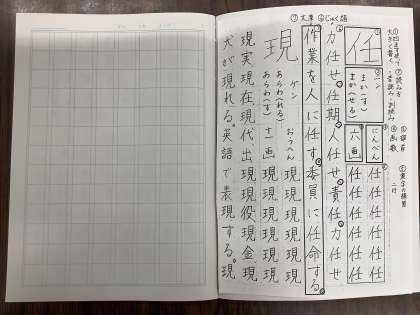 ①四マス使って
大きく書く
②読み方
・音読み・訓読み
③部首
④画数
⑤漢字の練習
二行
⑦文章 ⑥じゅく語
任
ニン
まか(す)
まか(せる)
にんべん 任任任任任任
六画 任任任任任任
力任せ 任期 人任せ 責任 力任せ
作業を人に任す。委員に任命する。
現
ゲン おうへん 現現現現現
あらわ(れる)
あらわ(す) 十一画 現現現現現
現実 現在 現代 出現 現役 現金 現
犬が現れる。英語で表現する。現